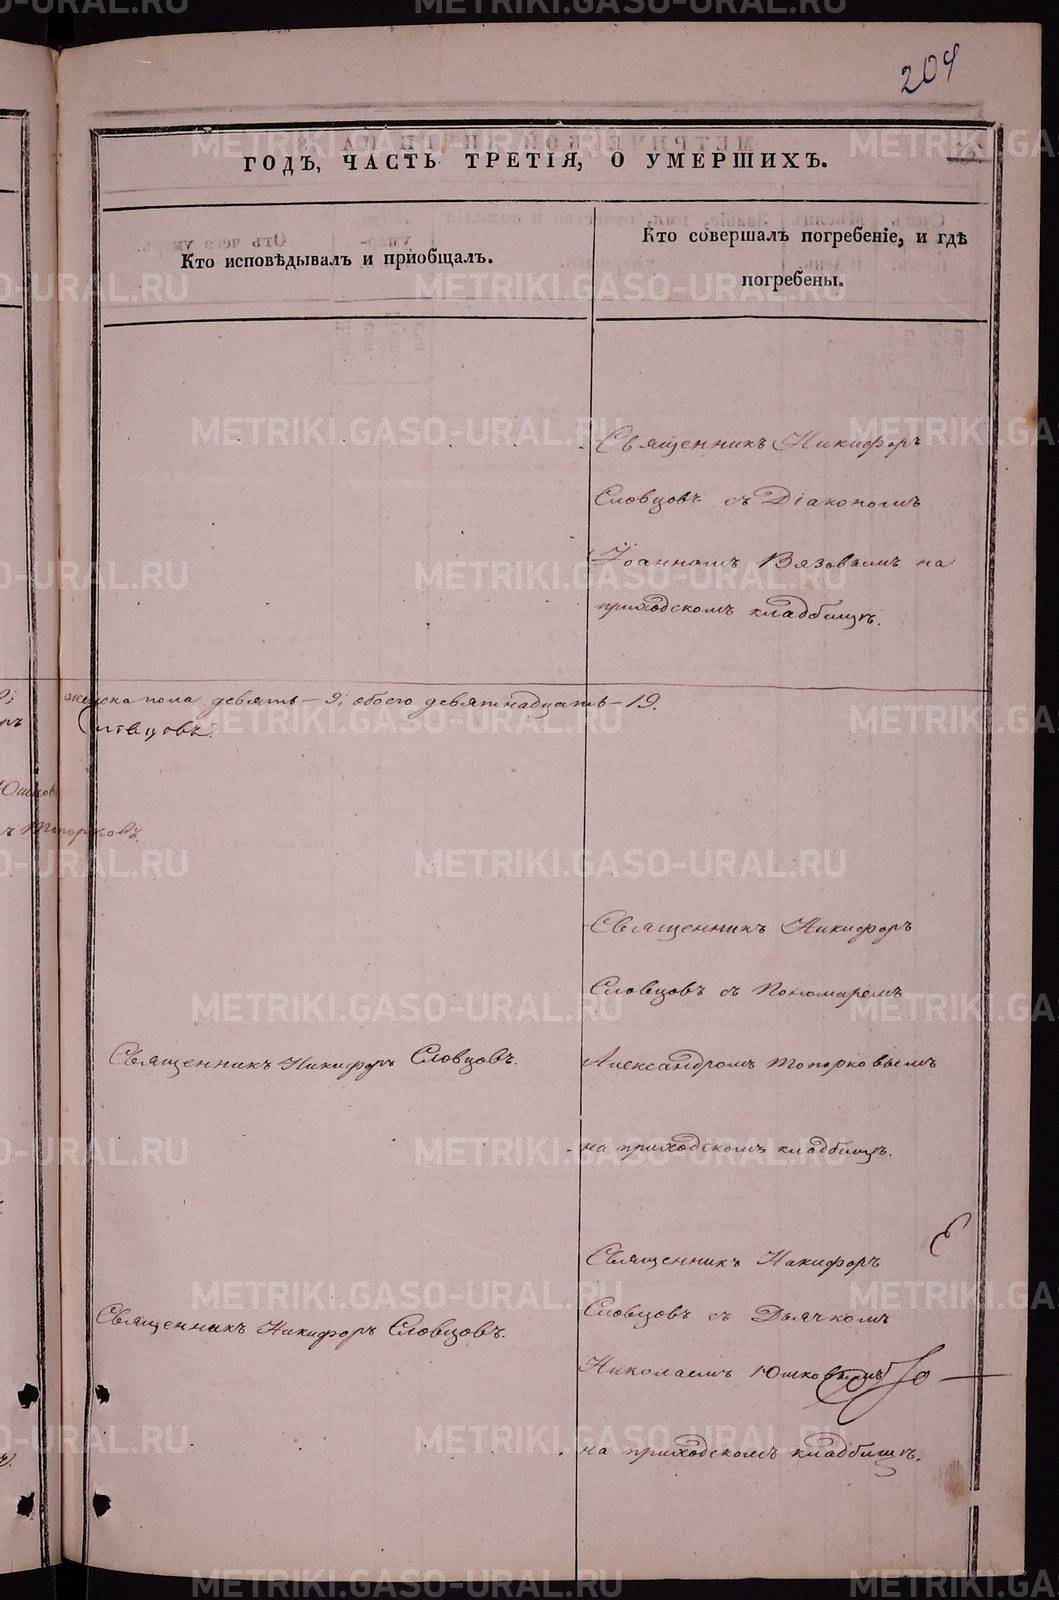 204
ГОДЪ, ЧАСТЬ ТРЕТІЯ, О УМЕРШИХЪ.
Кто исповѣдывалъ и пріобщалъ.
Кто совершалъ погребеніе, и гдѣ
погребены.
Священникъ Никифоръ
Словцовъ съ Діакономъ
Іоанномъ Вязовымъ на
приходскомъ кладбищѣ.
женска пола девять – 9; обоего девятнадцать – 19.
Словцовъ.
Юшков
Топорковъ.
Священникъ Никифоръ Словцовъ.
Священникъ Никифоръ
Словцовъ съ Пономаремъ
Александромъ Топорковымъ
на приходскомъ кладбищѣ.
Священникъ Никифоръ Словцовъ.
Священникъ Никифоръ
Словцовъ съ Дьячкомъ
Николаемъ Юшковымъ
на приходскомъ кладбищѣ.
METRIKI.GASO-URAL.RU